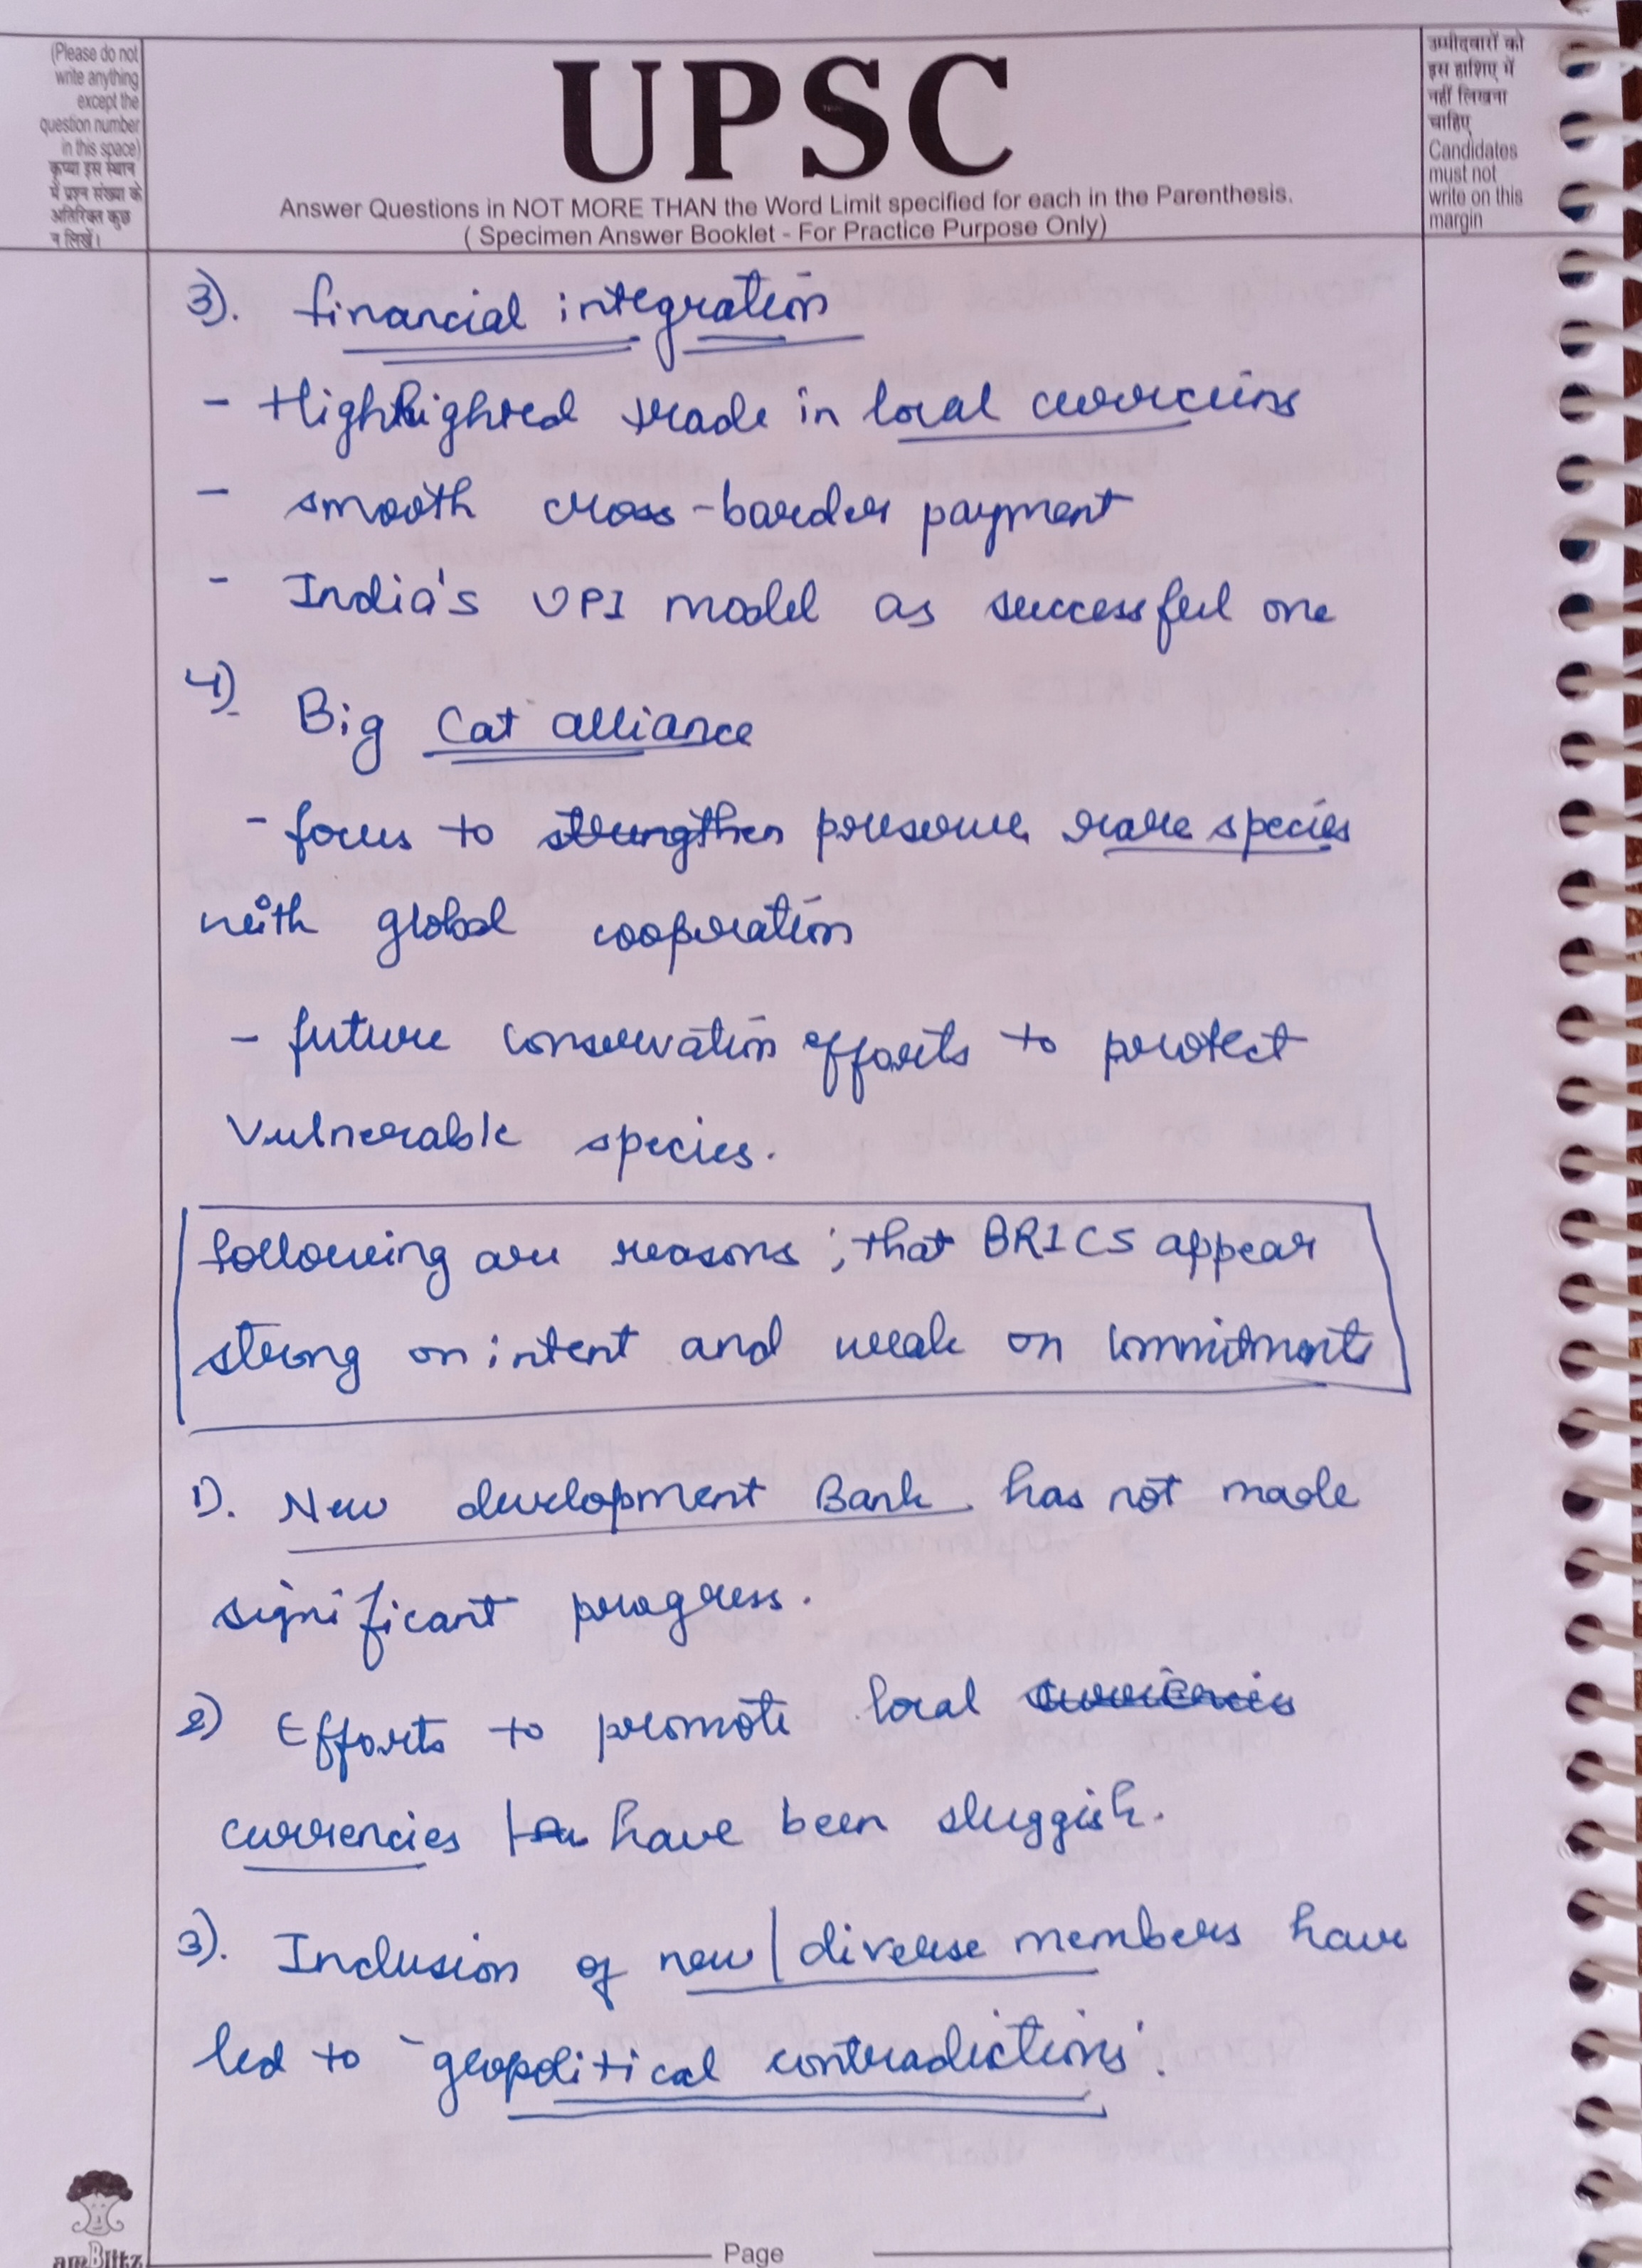 (Please do not
write anything
except the
question number
in this space)
कृप्या इस स्थान
में प्रश्न संख्या के
अतिरिक्त कुछ
न लिखें।
UPSC
Answer Questions in NOT MORE THAN the Word Limit specified for each in the Parenthesis.
( Specimen Answer Booklet - For Practice Purpose Only)
उम्मीदवारों को
इस हाशिए में
नहीं लिखना
चाहिए
Candidates
must not
write on this
margin
3). financial integration
- Highlighted trade in local currencies
- smooth cross-border payment
- India's UPI model as successful one
4) Big Cat alliance
- focus to strengthen preserve rare species
with global cooperation
- future conservation efforts to protect
vulnerable species.
following are reasons ; that BRICS appear
strong on intent and weak on commitments
1). New development Bank has not made
significant progress.
2) Efforts to promote local currencies
currencies have been sluggish.
3). Inclusion of new / diverse members have
led to 'geopolitical contradictions'.
amBlitz
Page